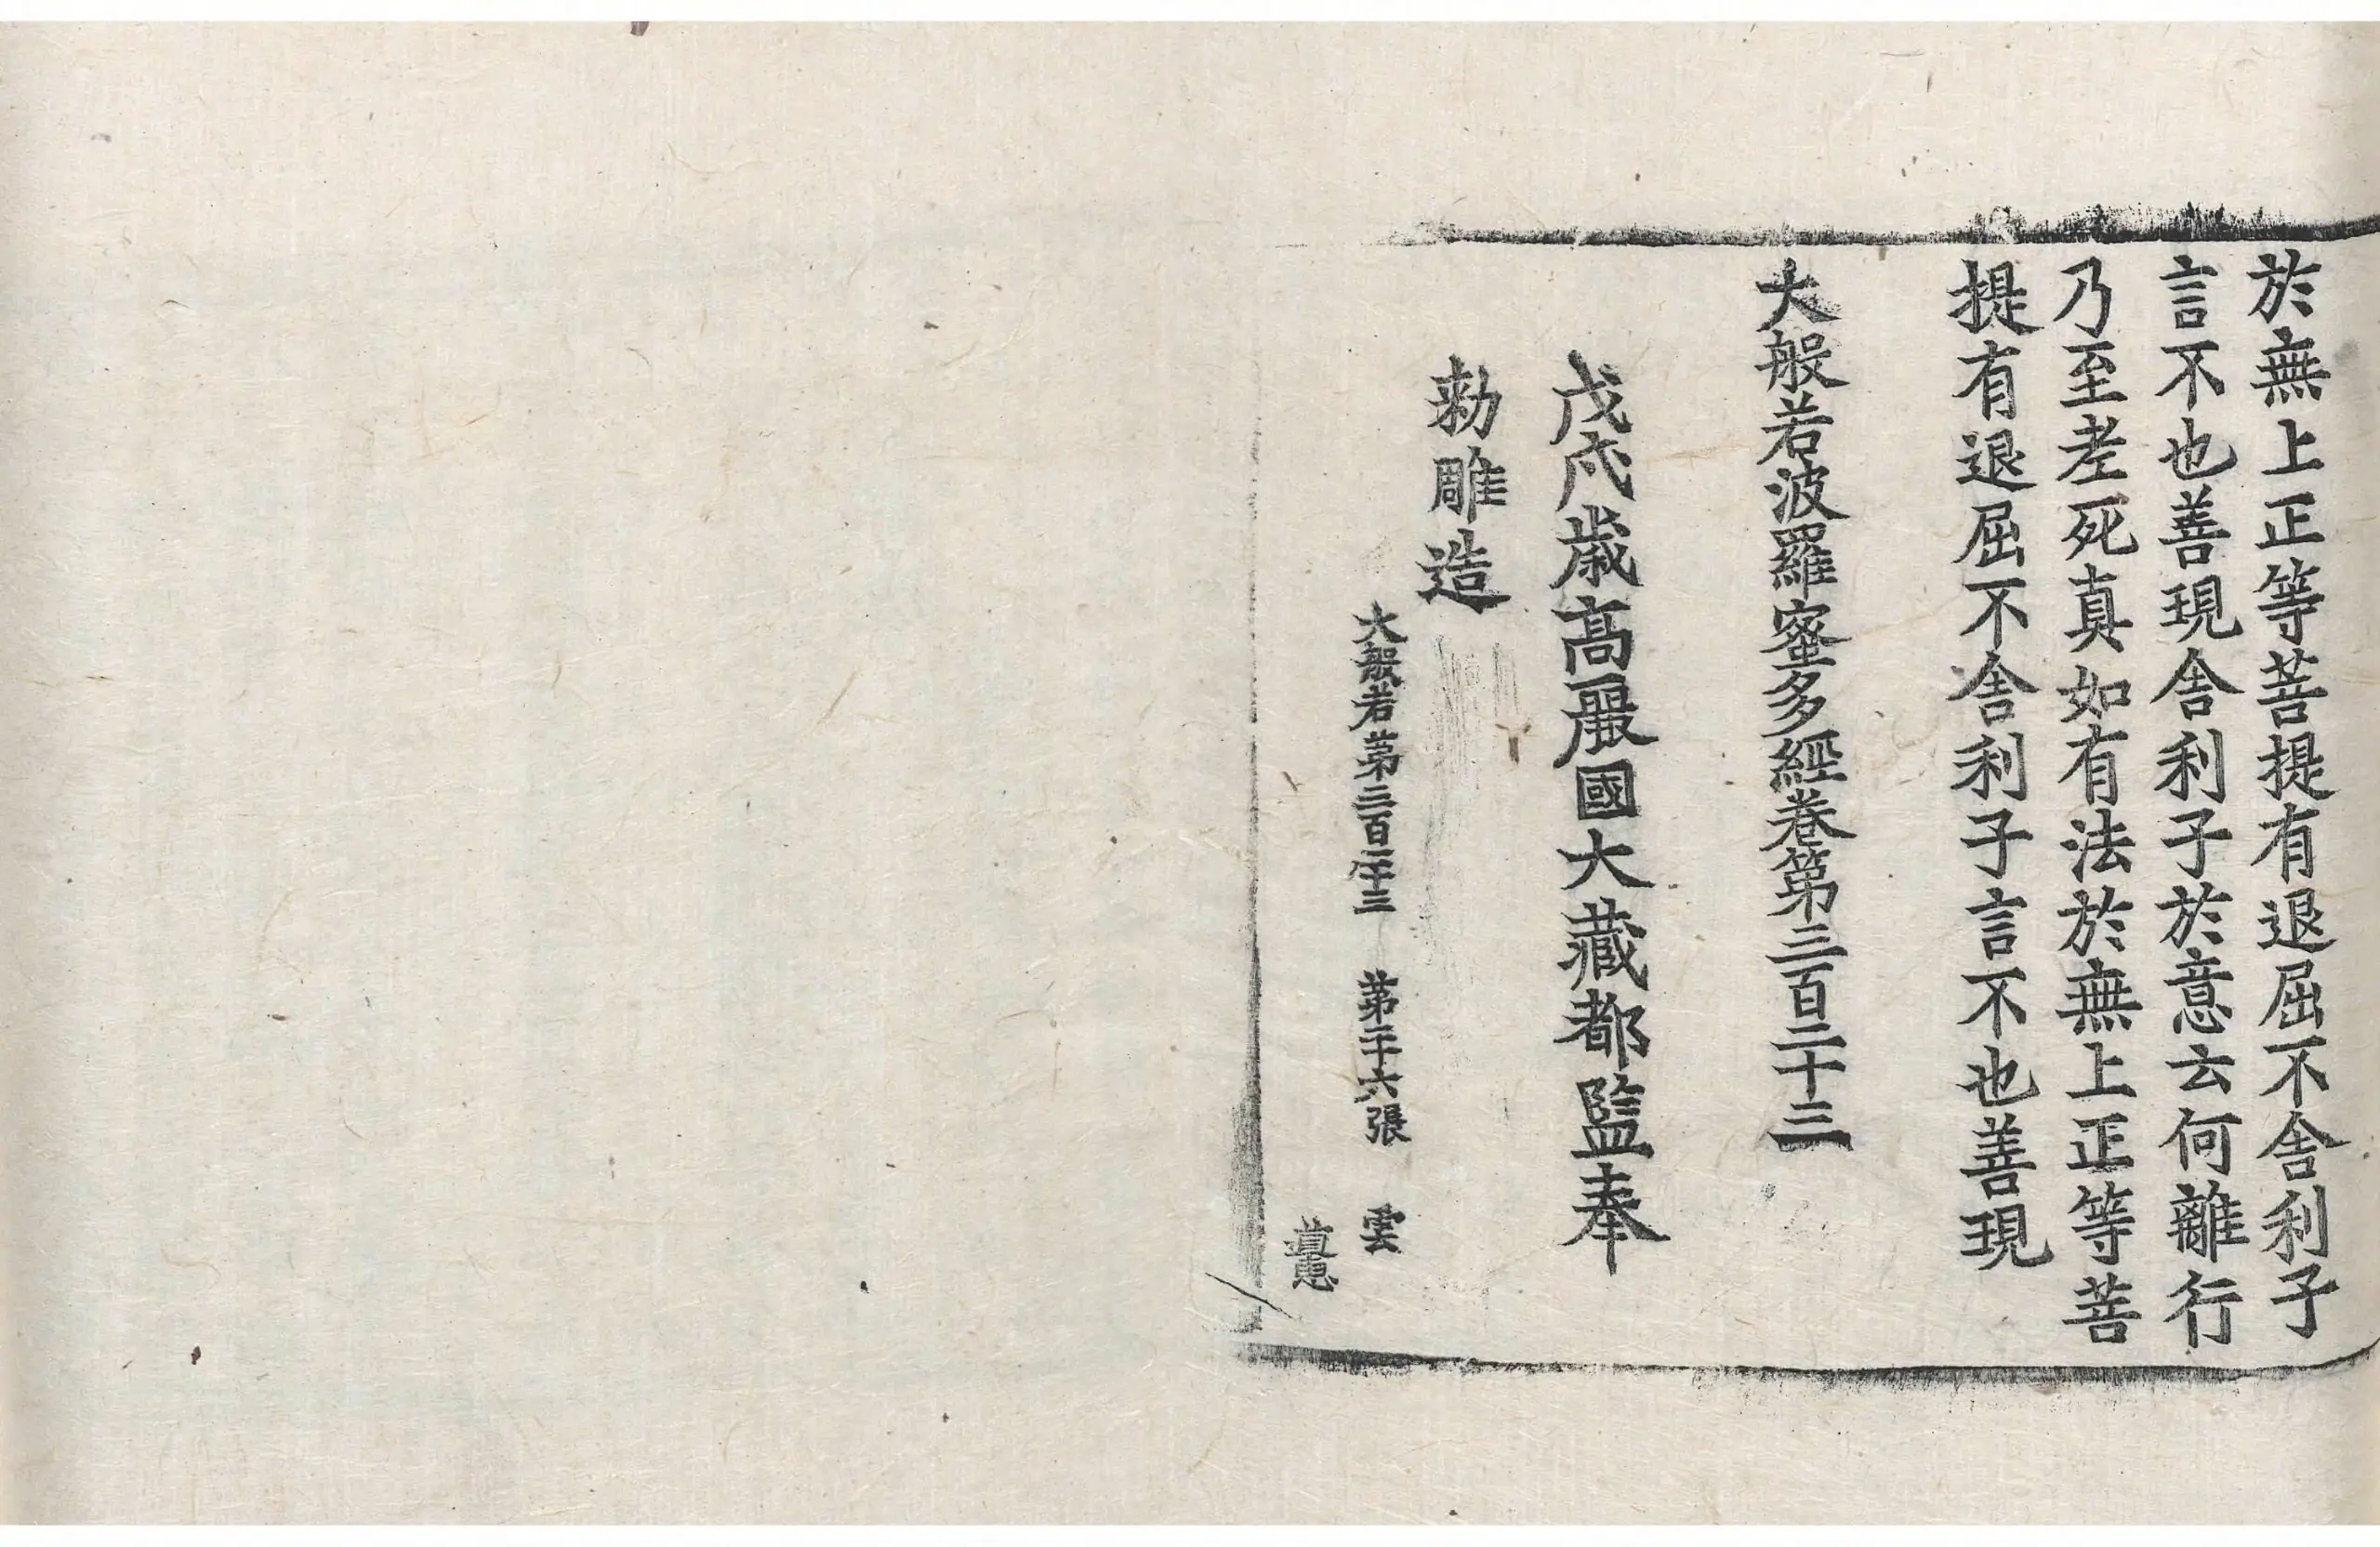 於無上正等菩提有退屈不舍利子
言不也善現舍利子於意云何離行
乃至老死真如有法於無上正等菩
提有退屈不舍利子言不也善現
大般若波羅蜜多經卷第三百二十三
戊戌歳高麗國大藏都監奉
勅雕造
大般若第三百二十三 第二十六張 雲